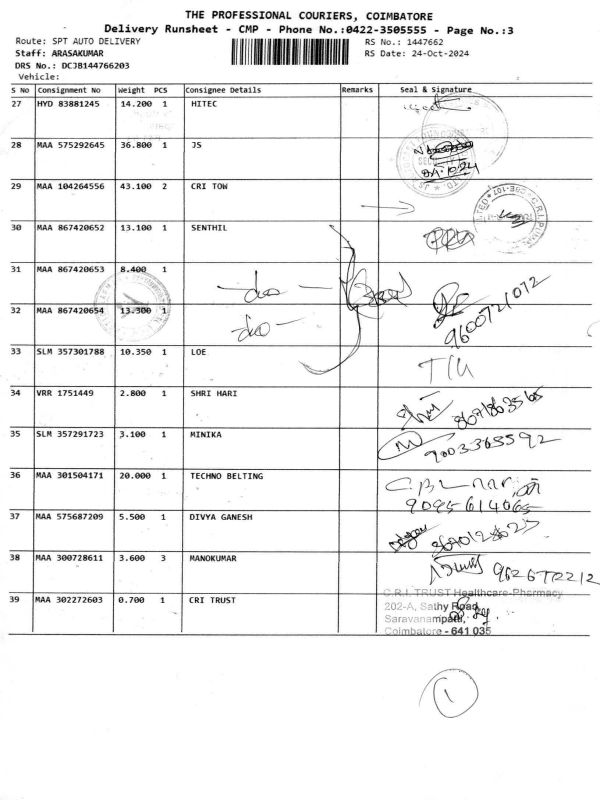 THE PROFESSIONAL COURIERS, COIMBATORE
Delivery Runsheet - CMP - Phone No.:0422-3505555 - Page No.:3
Route: SPT AUTO DELIVERY RS No.: 1447662
Staff: ARASAKUMAR RS Date: 24-Oct-2024
DRS No.: DCJB144766203
Vehicle:
S No Consignment No Weight PCS Consignee Details Remarks Seal & Signature
27 HYD 83881245 14.200 1 HITEC
28 MAA 575292645 36.800 1 JS
29 MAA 104264556 43.100 2 CRI TOW
30 MAA 867420652 13.100 1 SENTHIL
31 MAA 867420653 8.400 1
32 MAA 867420654 13.300 1
9600721072
33 SLM 357301788 10.350 1 LOE
34 VRR 1751449 2.800 1 SHRI HARI
35 SLM 357291723 3.100 1 MINIKA
9003365592
36 MAA 301504171 20.000 1 TECHNO BELTING
9095614065
37 MAA 575687209 5.500 1 DIVYA GANESH
38 MAA 300728611 3.600 3 MANOKUMAR
39 MAA 302272603 0.700 1 CRI TRUST
C.R.I. TRUST Healthcare-Pharmacy
202-A, Sathy Road,
Saravanampatti,
Coimbatore - 641 035
1